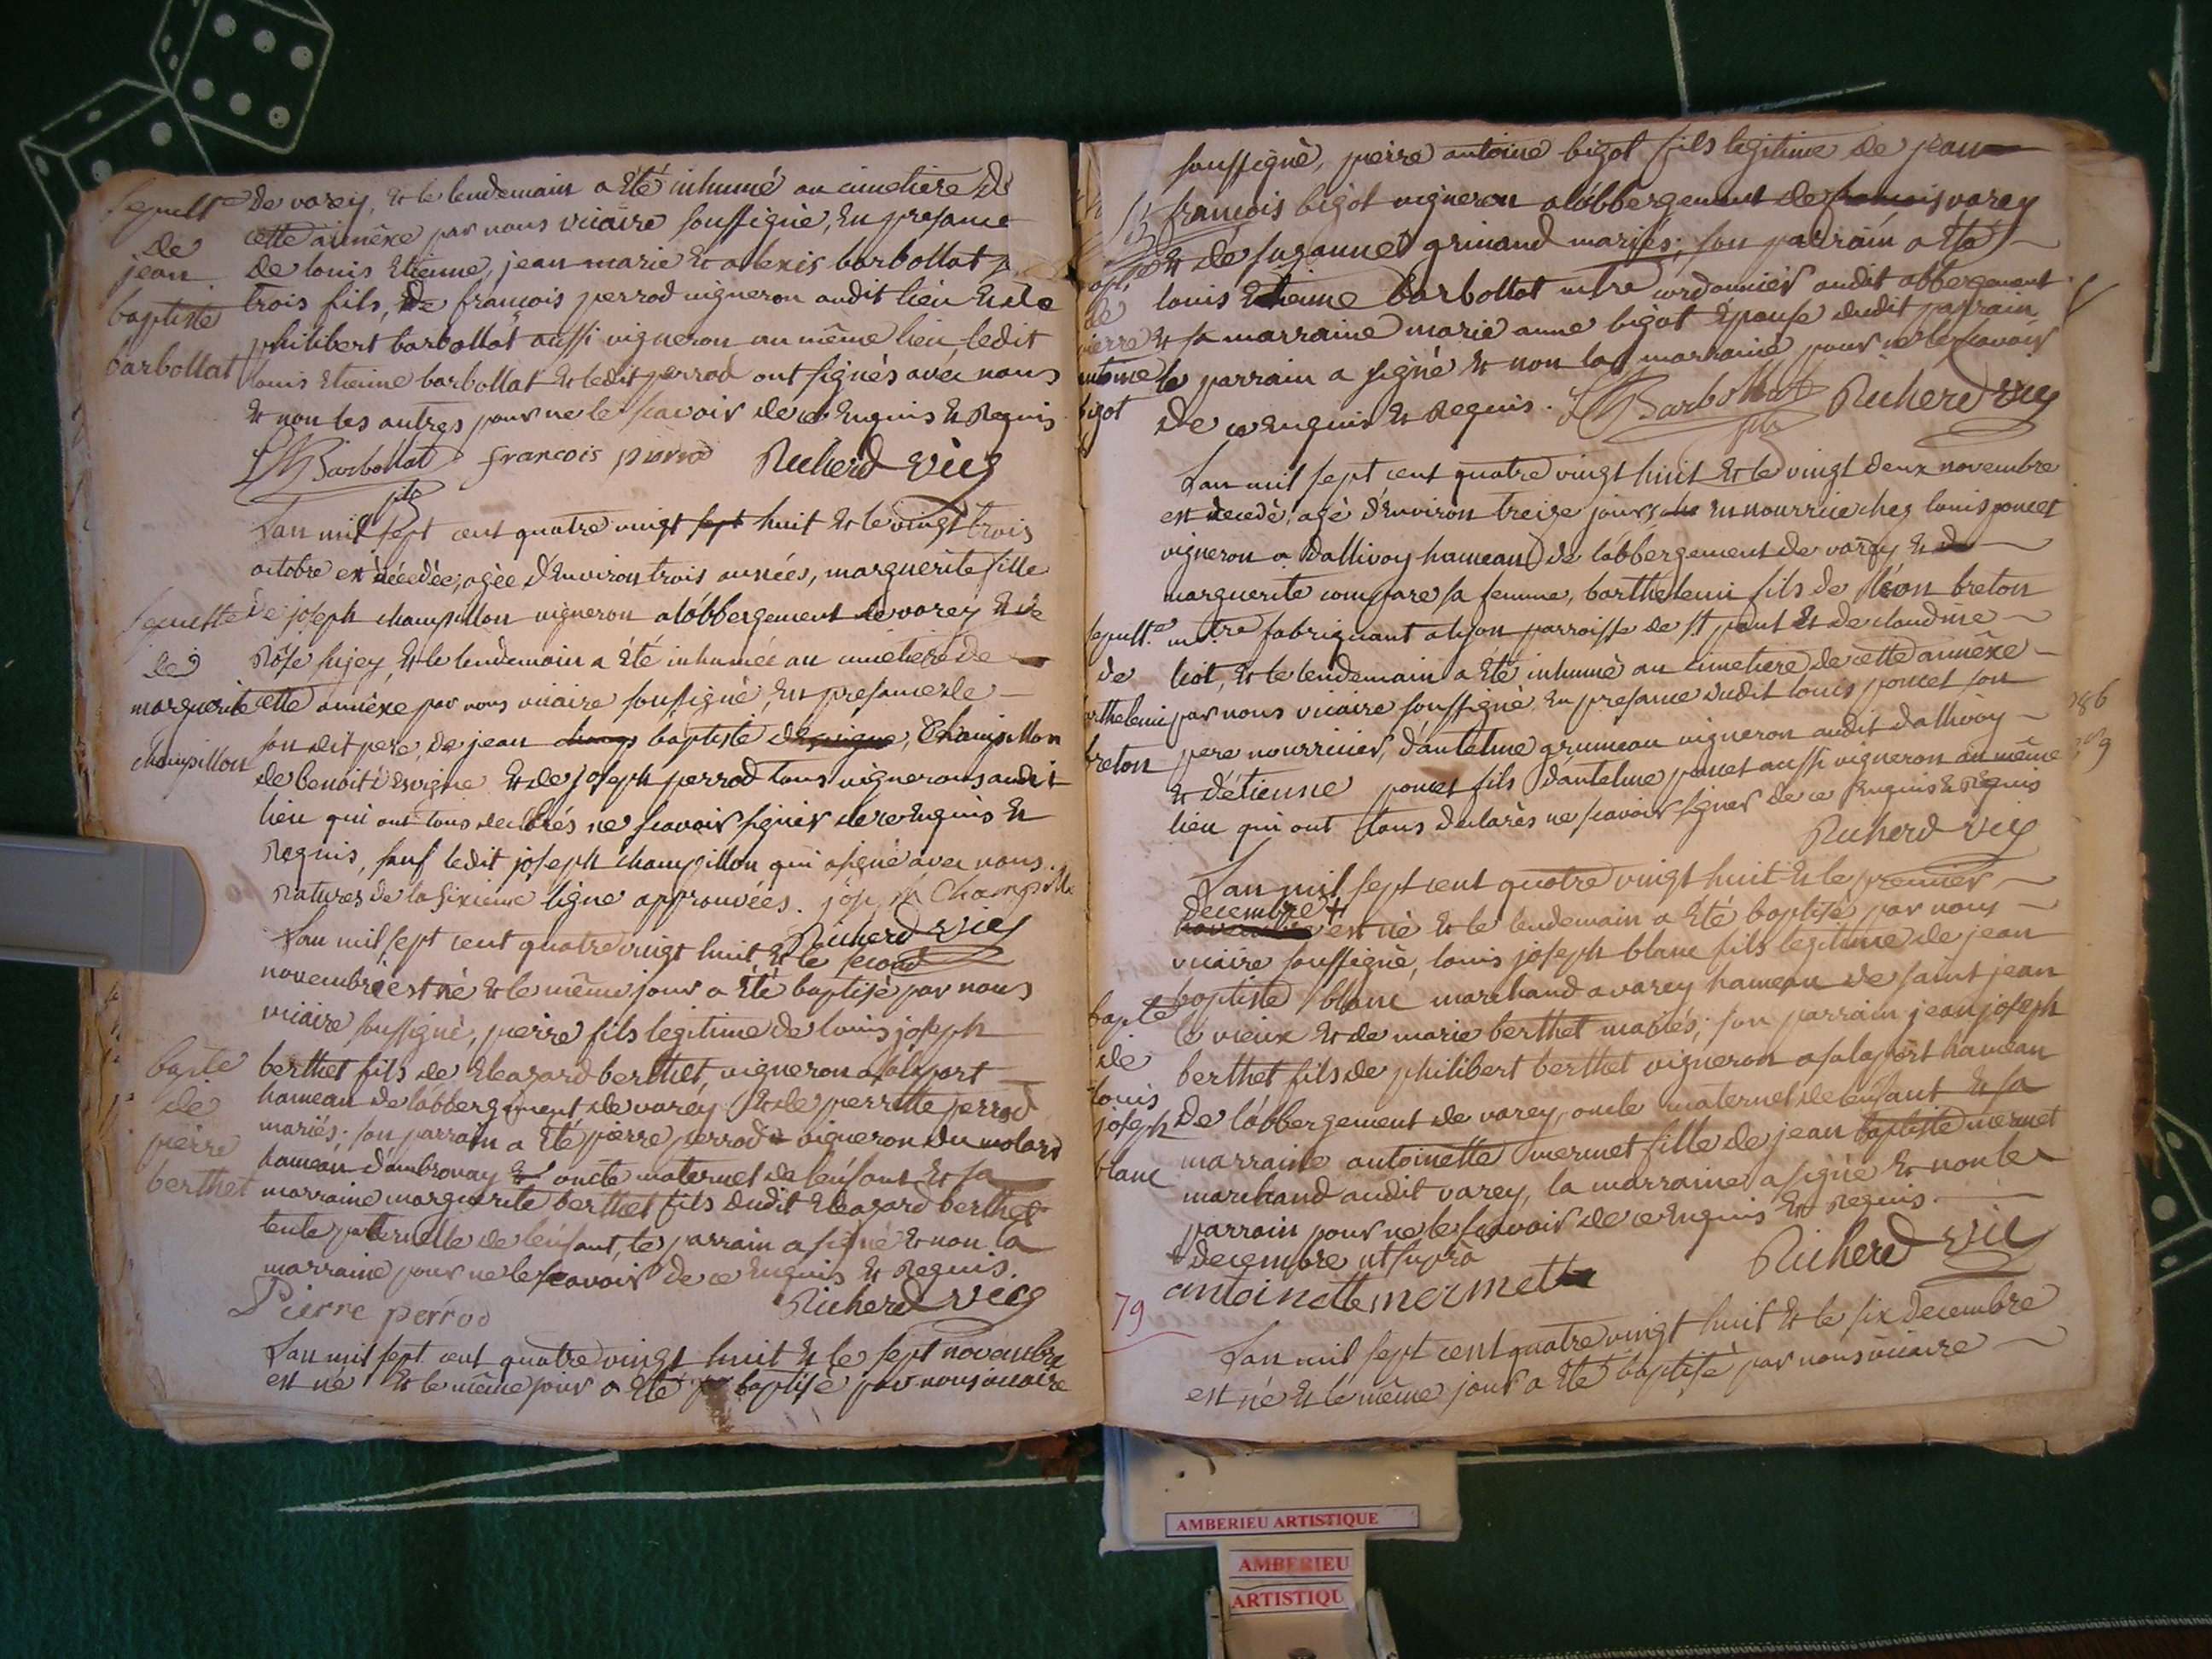 Sepult.e
de
jean
baptiste
barbollat
de varey, & le lendemain a été inhumé au cimetiere de
cette annêxe par nous vicaire soussigné, En presance
de louis Etienne, jean marie & alexis barbollat
trois fils, de françois perrod vigneron audit lieu & de
philibert barbollat aussi vigneron au même lieu, ledit
louis etienne barbollat & ledit perrod ont signés avec nous
& non les autres pour ne le scavoir de ce Enquis & Requis
Barbollat francois perrod Richerd vic
fils
Lan mil sept cent quatre vingt sept huit & le vingt trois
octobre est décedée, agée d'Environ trois années, marguerite fille
de joseph champillon vigneron a lábbergement de varey & de
Rose sijey, & le lendemain a été inhumée au cimetiere de
cette annêxe par nous vicaire soussigné, En presance de
son dit pere, de jean baptiste Champillon
de benoit & de joseph perrod tous vignerons audit
lieu qui ont tous declarés ne scavoir signer de ce Enquis &
Requis, sauf ledit joseph champillon qui a signé avec nous.
Ratures de la sixieme ligne approuvées. joseph Champillo
Richerd vic
Sepulte
de
marguerite
champillon
Lan mil sept cent quatre vingt huit & le second
novembre est né & le même jour a été baptisé par nous
vicaire soussigné, pierre fils legitime de louis joseph
berthet fils de Eleazard berthet, vigneron a salaport
hameau de lábbergement de varey & de perrette perrod
mariés; son parrain a été pierre perrod vigneron du molard
hameau d'ambronay oncle maternel de lenfant & sa
marraine marguerite berthet fils dudit Eleazard berthet
tente paternelle de lenfant, le parrain a signé & non la
marraine pour ne le scavoir de ce Enquis & Requis.
Pierre perrod Richerd vic
bapte
de
pierre
berthet
Lan mil sept cent quatre vingt huit & le sept novembre
est né & le même jour a été baptisé par nous vicaire
soussigné, pierre antoine bigot fils legitime de jean
françois bigot vigneron a lábbergement de francois varey
& de suzanne grinand mariés; son parrain a été
louis Etienne barbollat mtre cordonnier audit abbergement
& sa marraine marie anne bigot épouse dudit parrain
le parrain a signé & non la marraine pour ne le scavoir
de ce enquis & Requis. Barbollat Richerd vic
fils
de
pierre
antoine
bigot
Lan mil sept cent quatre vingt huit & le vingt deux novembre
est decedé, agé d'environ treize jours en nourrice chez louis poncet
vigneron a dallivoy hameau de lábbergement de varey, & de
marguerite compare sa femme, barthelemi fils de léon breton
mtre fabriquant a lyon parroisse de st paul & de claudine
liot, & le lendemain a été inhumé au cimetiere de cette annêxe
par nous vicaire soussigné En presance dudit louis poncet son
pere nourricier, d'antelme grumeau vigneron audit dallivoy
& d'étienne poncet fils d'antelme poncet aussi vigneron au même
lieu qui ont tous declarés ne scavoir signer de ce Enquis & Requis
Richerd vic
sepult.e
de
barthelemi
breton
Lan mil sept cent quatre vingt huit & le premier
decembre +
novembre est né & le lendemain a été baptisé par nous
vicaire soussigné, louis joseph blanc fils legitime de jean
baptiste blanc marchand a varey hameau de saint jean
le vieux & de marie berthet mariés; son parrain jean joseph
berthet fils de philibert berthet vigneron a salaport hameau
de lábbergement de varey, oncle maternel de lenfant & sa
marraine antoinette mermet fille de jean baptiste mermet
marchand audit varey, la marraine a signé & non le
parrain pour ne le scavoir de ce enquis & requis.
+ decembre ut supra Richerd vic
antoinette mermet
bapte
de
louis
joseph
blanc
79
Lan mil sept cent quatre vingt huit & le six decembre
est né & le même jour a été baptisé par nous vicaire
AMBERIEU ARTISTIQUE
AMBERIEU
ARTISTIQU